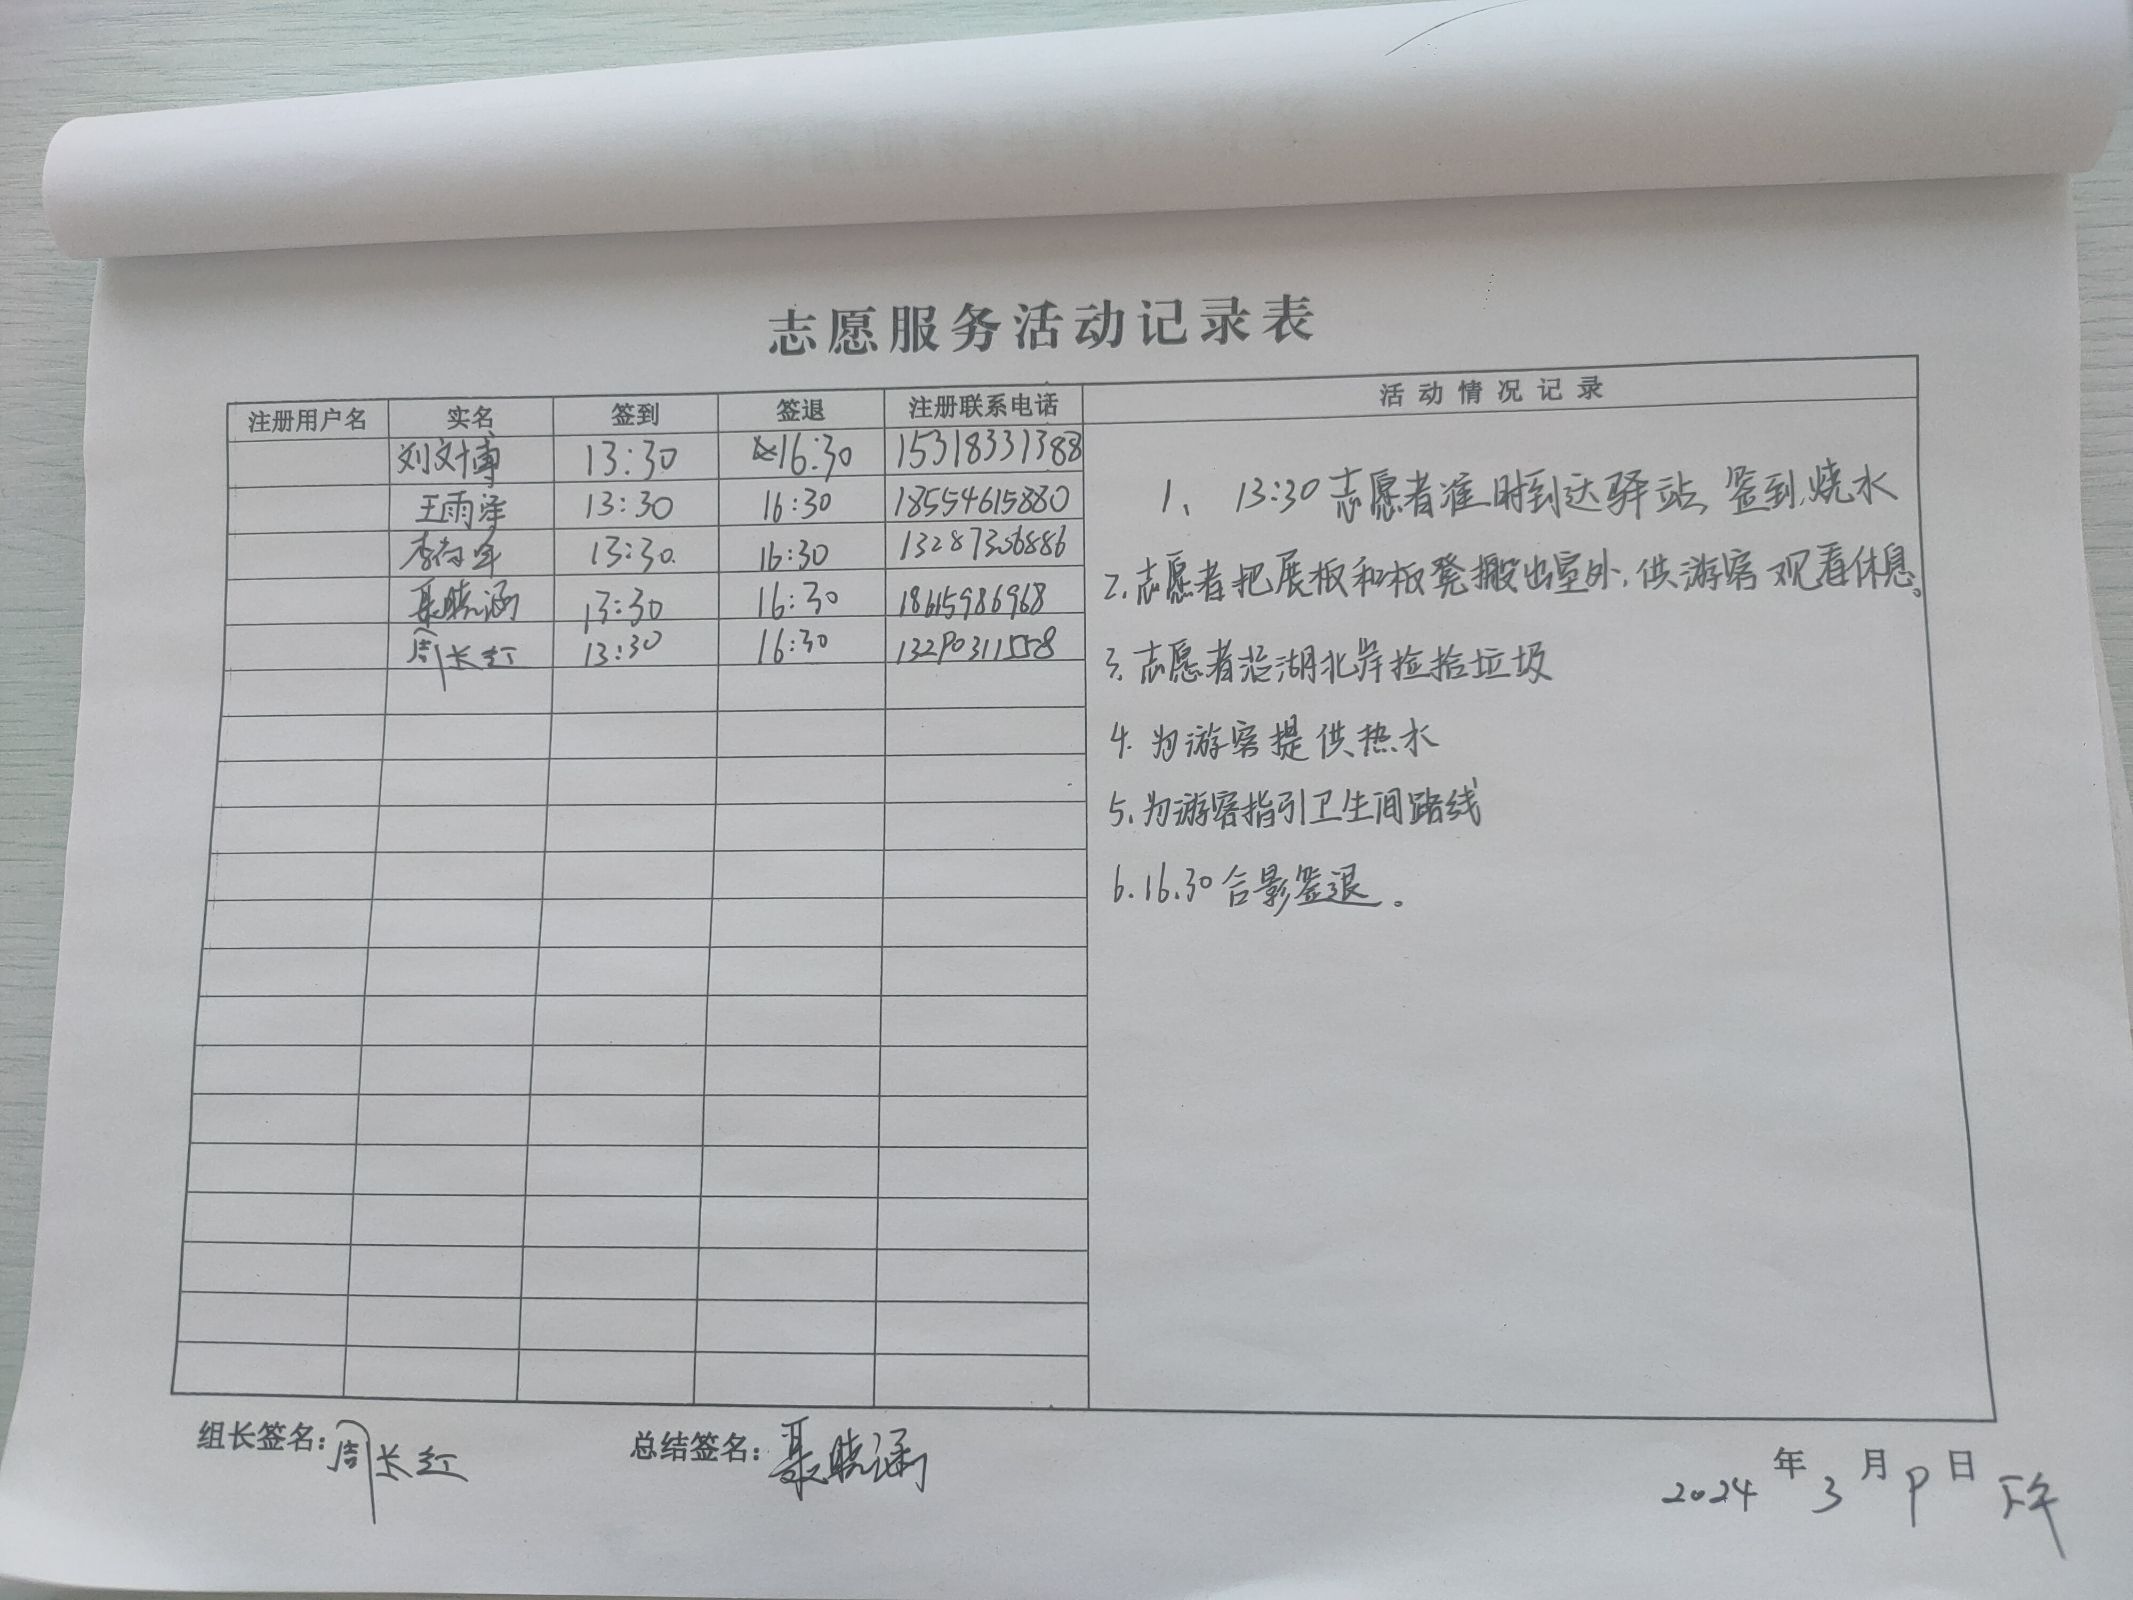 志愿服务活动记录表
注册用户名 实名 签到 签退 注册联系电话 活动情况记录
刘文博 13:30 16:30 15318331388
王雨泽 13:30 16:30 18554615880
李 13:30. 16:30 13287306886
聂晓涵 13:30 16:30 18615986968
周长红 13:30 16:30 13290311558
1、 13:30志愿者准时到达驿站,签到,烧水
2.志愿者把展板和板凳搬出室外,供游客观看休息。
3.志愿者沿湖北岸捡拾垃圾
4.为游客提供热水
5.为游客指引卫生间路线
6.16.30合影签退。
组长签名:周长红 总结签名:聂晓涵 2024年3月9日下午